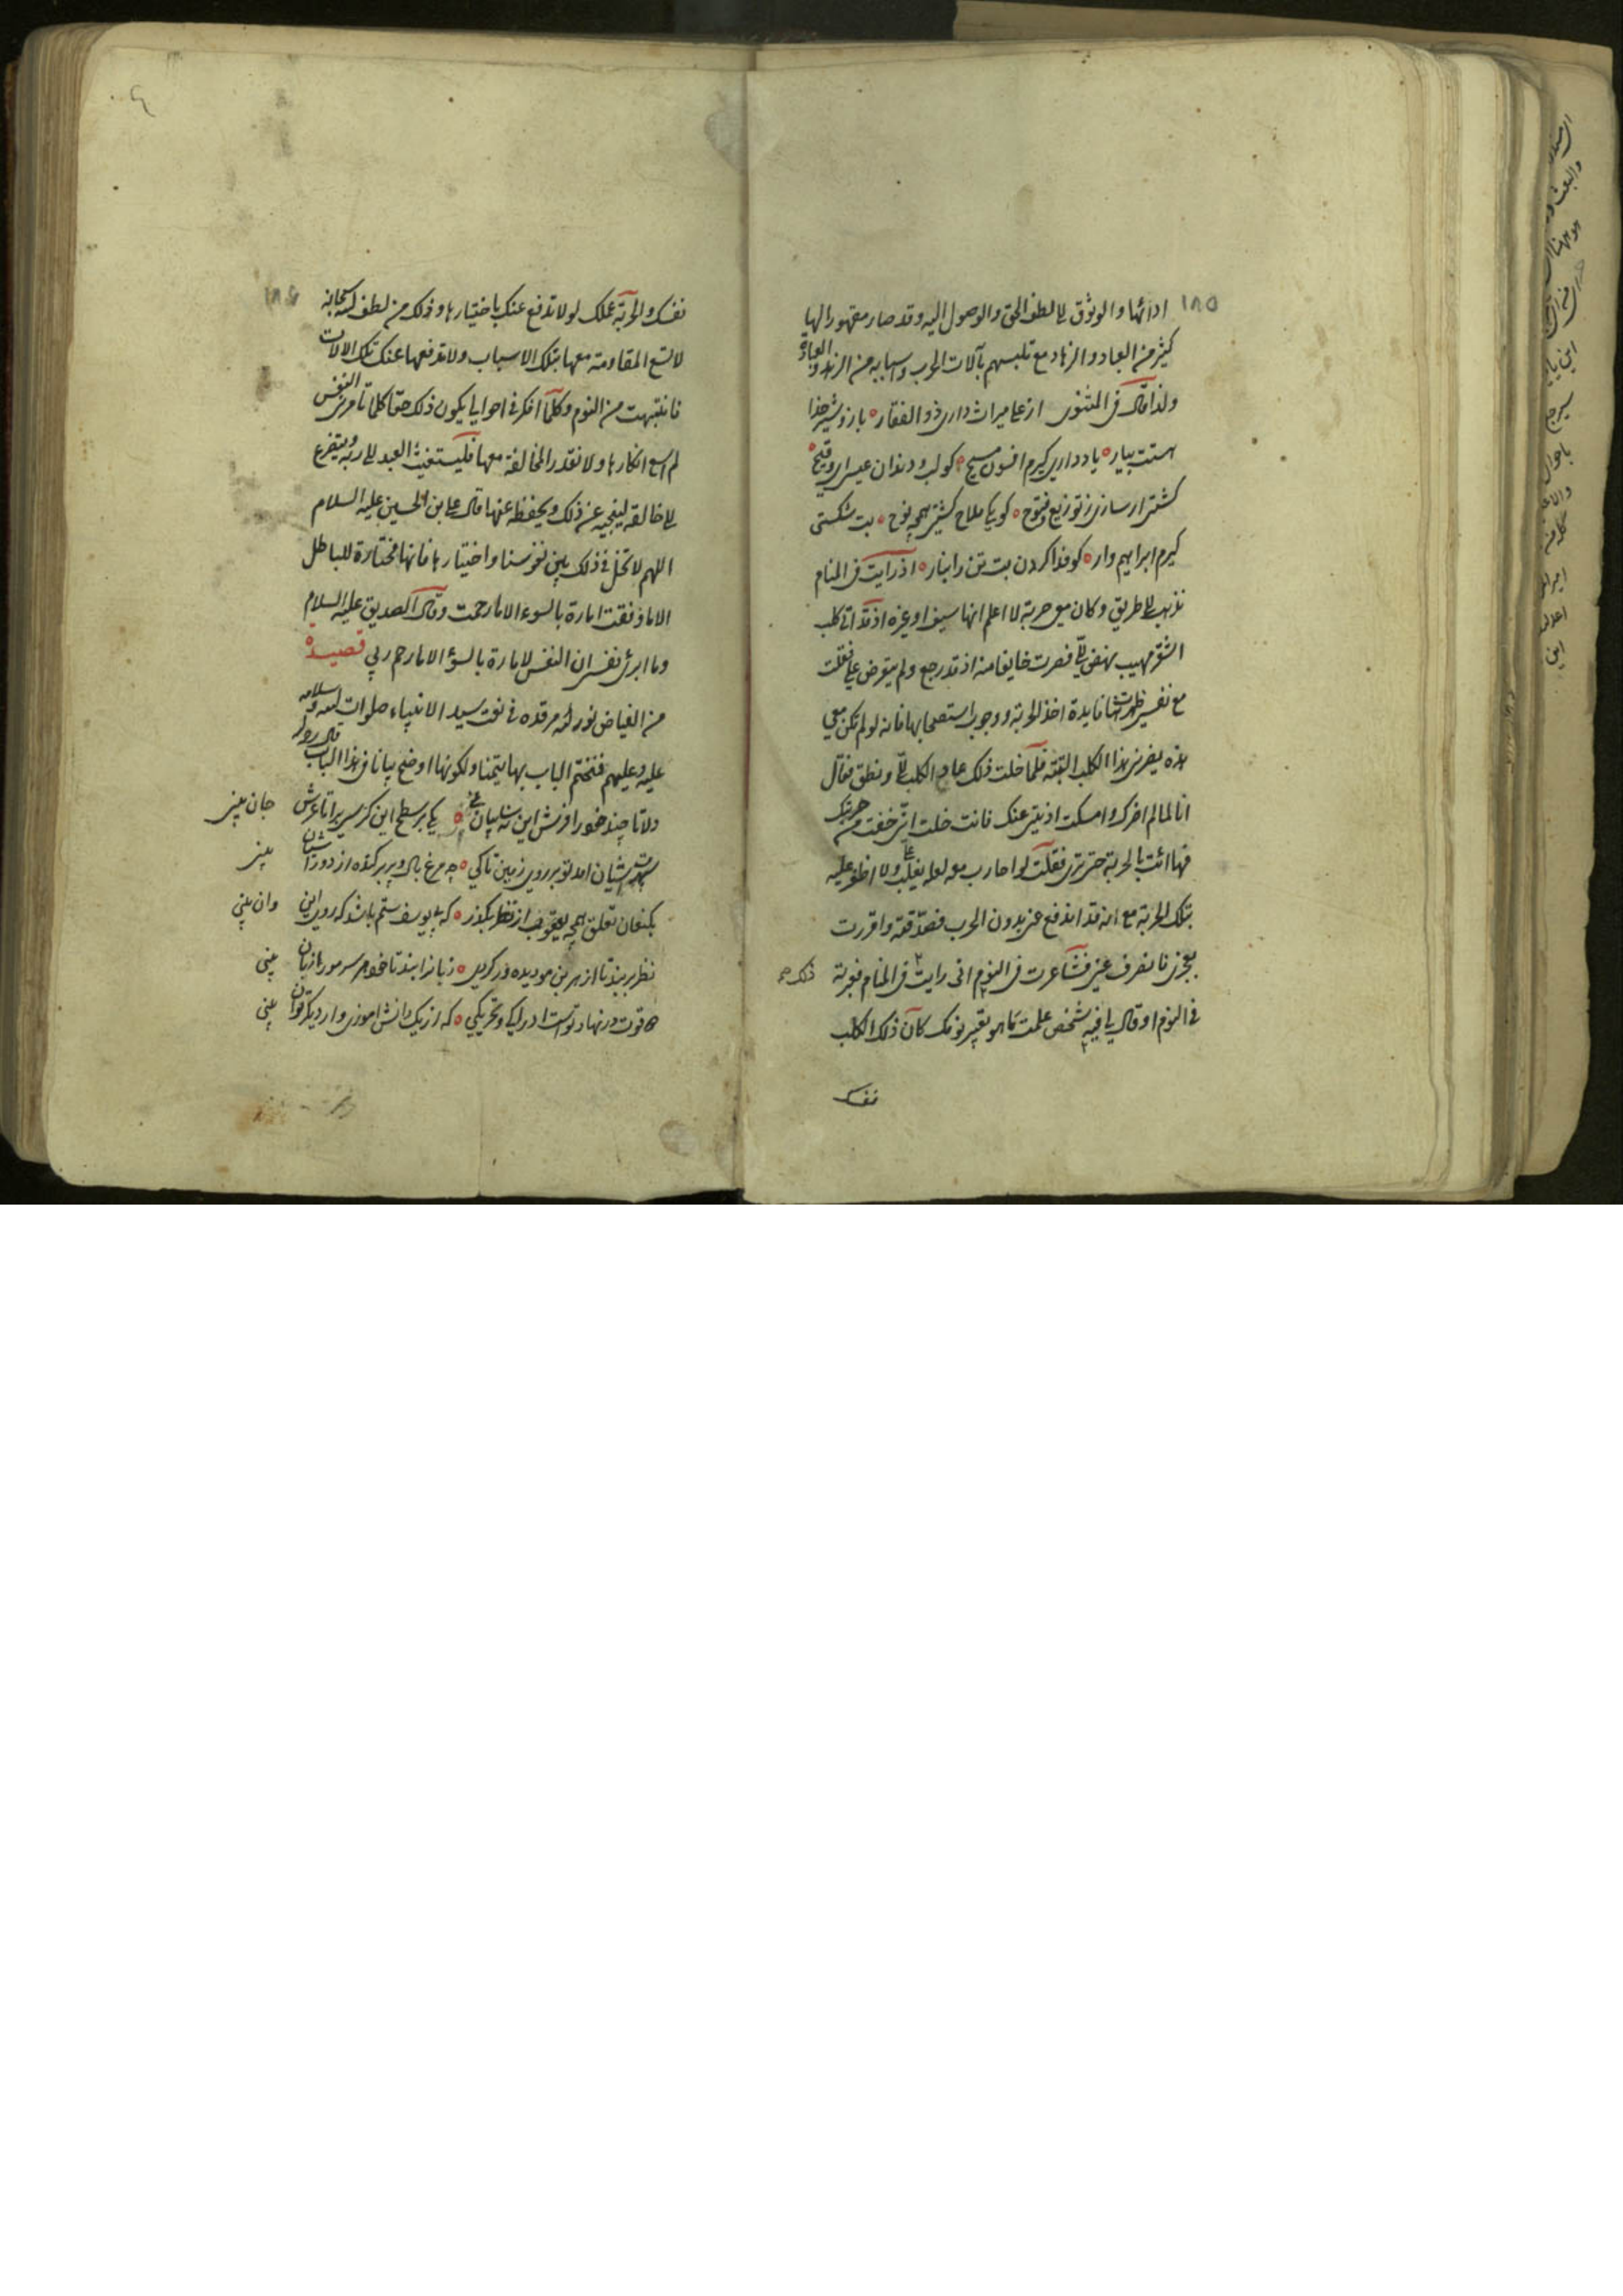 ١٨٥
ادائها والوثوق الى لطف الحق والوصول اليه وقد صار مقهورا لها
كثير من العباد والزهاد مع تلبسهم بآلات الحرب واسبابه من الزهد والعبادة
ولذا قال في المثنوى از على ميراث دارى ذو الفقار ه بازوى شير خدا
هستت بيار ه ياد دارى كيرم افسون مسيح ه كو لب و دندان عيسى اى وقيح ه
كشتى ار سازى ز توزيع و فتوح ه كو يكى ملاح كشتى همچو نوح ه بت شكستى
كيرم ابراهيم وار ه كو فدا كردن بت تن را بنار ه اذ رايت فى المنام
نذهب الى طريق وكان معى حربة لا اعلم انها سيف او غيره اذ قد اتى كلب
اشقر مهيب نهض الىّ فصرت خايفا منه اذ قد رجع ولم يتعرض على فقلت
مع نفسى ظهرت فايدة اخذ الحربة ووجوب استصحابها فانه لو لم تكن معى
هذه يضرنى هذا الكلب البتة فلما خلت ذلك عاد الكلب الىّ ونطق فقال
انا لما لم اضرك وامسكت اذيتى عنك فانت خلت انى خفت من حربتك
فهاائت بالحربة حتى ترى فقلت لو احارب معه لعله يغلب علىّ ولا اظفر عليه
بتلك الحربة مع انه قد اندفع عنى بدون الحرب فصدّقته واقررت
بعجزى فانصرف عنى فتشاعرت فى النوم انى رايت فى المنام فعبرته
ذلك
فى النوم او قال يا فيه شخص علمت ما هو تعبير نومك كان ذلك الكلب
نفسك
١٨٦
نفسك والحربة عملك لولا تدفع عنك باختيارها وذلك من لطف الله سبحانه
لا تسع المقاومة معها بتلك الاسباب ولا تدفعها عنك تلك الالات
فانتبهت من النوم وكلما افكر فى احوالى يكون ذلك حقا كلما تامرنى النفس
لم اسع انكارها ولا نقدر المخالفة معها فليستغيث العبد الى ربه ويتضرع
الى خالقه لينجيه عن ذلك ويحفظه عنها قال على بن الحسين عليه السلام
اللهم لا تخل فى ذلك بين نفوسنا واختيارها فانها مختارة للباطل
الا ما وفقت امارة بالسوء الا ما رحمت وقال الصديق عليه السلام
وما ابرئ نفسى ان النفس لامارة بالسوء الا ما رحم ربى قصيده
من الفياض نور الله مرقده فى نعت سيد الانبياء صلوات الله وسلامه
عليه وعليهم فنختم الباب بها تيمنا ولكونها اوضح بيانا فى هذا الباب
دلا تا چند خود را فرش اين نه سايبان بينى ه يكى بر سطح اين كرسى برا تا عرش جان بينى
آمد تو بر روى زمين تا كى ه چه مرغ بال و پر بر كنده از دور آشيان بينى
بكنعان تعلق همچو يعقوب از نظر بكذر ه كه بى يوسف ستم باشد كه روى اين و ان بينى
نظر بربند تا از هر بن مو ديده ور كردى ه زبانرا بند تا خود هر سر مو را زبان بينى
دو قوت در نهاد توست ادراكى و تحريكى ه كه از يك دانش اموزى و از ديكر توان بينى